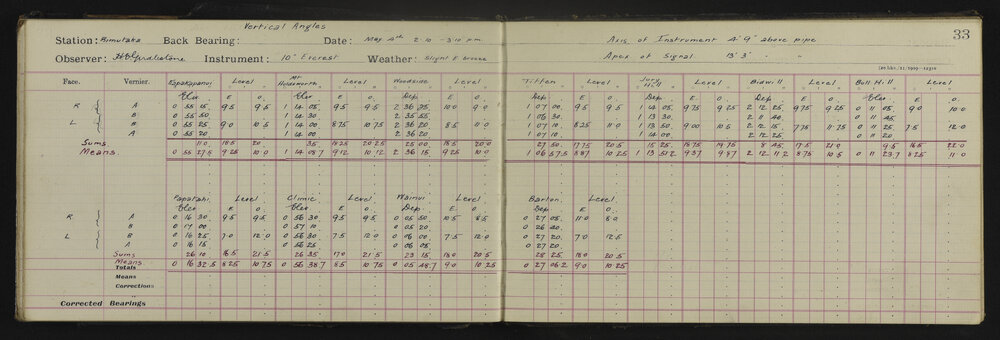 Vertical Angles
33
Station: Rimutaka Back Bearing: Date: May 4th 2-10 - 3-10 pm Axis of Instrument 4' 9" above pipe
Observer: Instrument: 10" Everest Weather: Slight E breeze Apex of Signal 13' 3" " "
Face. Vernier. Level Mt Level Woodside Level Titfen Level Jury Hill Level Bidwill Level Bull Hill Level
Elev E O. Elev E O. Dep E O. Dep. E O. Elev E O. Dep E O. Elev. E O.
R A 0 55 15. 9.5 9.5 1 14 05. 9.5 9.5 2 36 25 10.0 9.0 1 07 00. 9.5 9.5 1 14 05. 9.75 9.25 2 12 25. 9.75 9.25 0 11 05 9.0 10.0
B 0 55 50 1 14 30 2 35 55 1 06 30. 1 13 30. 2 11 40. 0 11 45
L B 0 55 25 9.0 10.5 1 14 00 8.75 10.75 2 36 20 8.5 11.0 1 07 10. 8.25 11.0 1 13 50. 9.00 10.5 2 12 15. 7.75 11.75 0 11 25 7.5 12.0
A 0 55 20 1 14 00 2 36 20 1 07 10. 1 14 00. 2 12 25. 0 11 20
Sums. 110 18.5 20 35 18.25 20.25 25 00 18.5 20.0 27 50. 17.75 20.5 15 25. 18.75 19.75 8 45. 17.5 21.0 9.5 16.5 22.0
Means. 0 55 27.5 9.25 10.0 1 14 08.7 9.12 10.12 2 36 15 9.25 10.0 1 06 57.5 8.87 10.25 1 13 51.2 9.37 9.87 2 12 11.2 8.75 10.5 0 11 23.7 8.25 11.0
Papatahi. Level Climie Level Wainui Level Barton. Level
Elev E O. Elev E O. Dep. E O. Dep. E O.
R A 0 16 30 9.5 9.5 0 56 30 9.5 9.5 0 05 50 10.5 8.5 0 27 05. 11.0 8.0
B 0 17 00 0 57 10 0 05 20 0 26 40.
L B 0 16 25 7.0 12.0 0 56 30 7.5 12.0 0 06 00 7.5 12.0 0 27 20. 7.0 12.5
A 0 16 15 0 56 25 0 06 05. 0 27 20.
Sums 26 10 16.5 21.5 26 35 17.0 21.5 23 15 18.0 20.5 28 25 18.0 20.5
Means. 0 16 32.5 8.25 10.75 0 56 38.7 8.5 10.75 0 05 48.7 9.0 10.25 0 27 06.2 9.0 10.25
Totals
Means
Corrections
Corrected Bearings